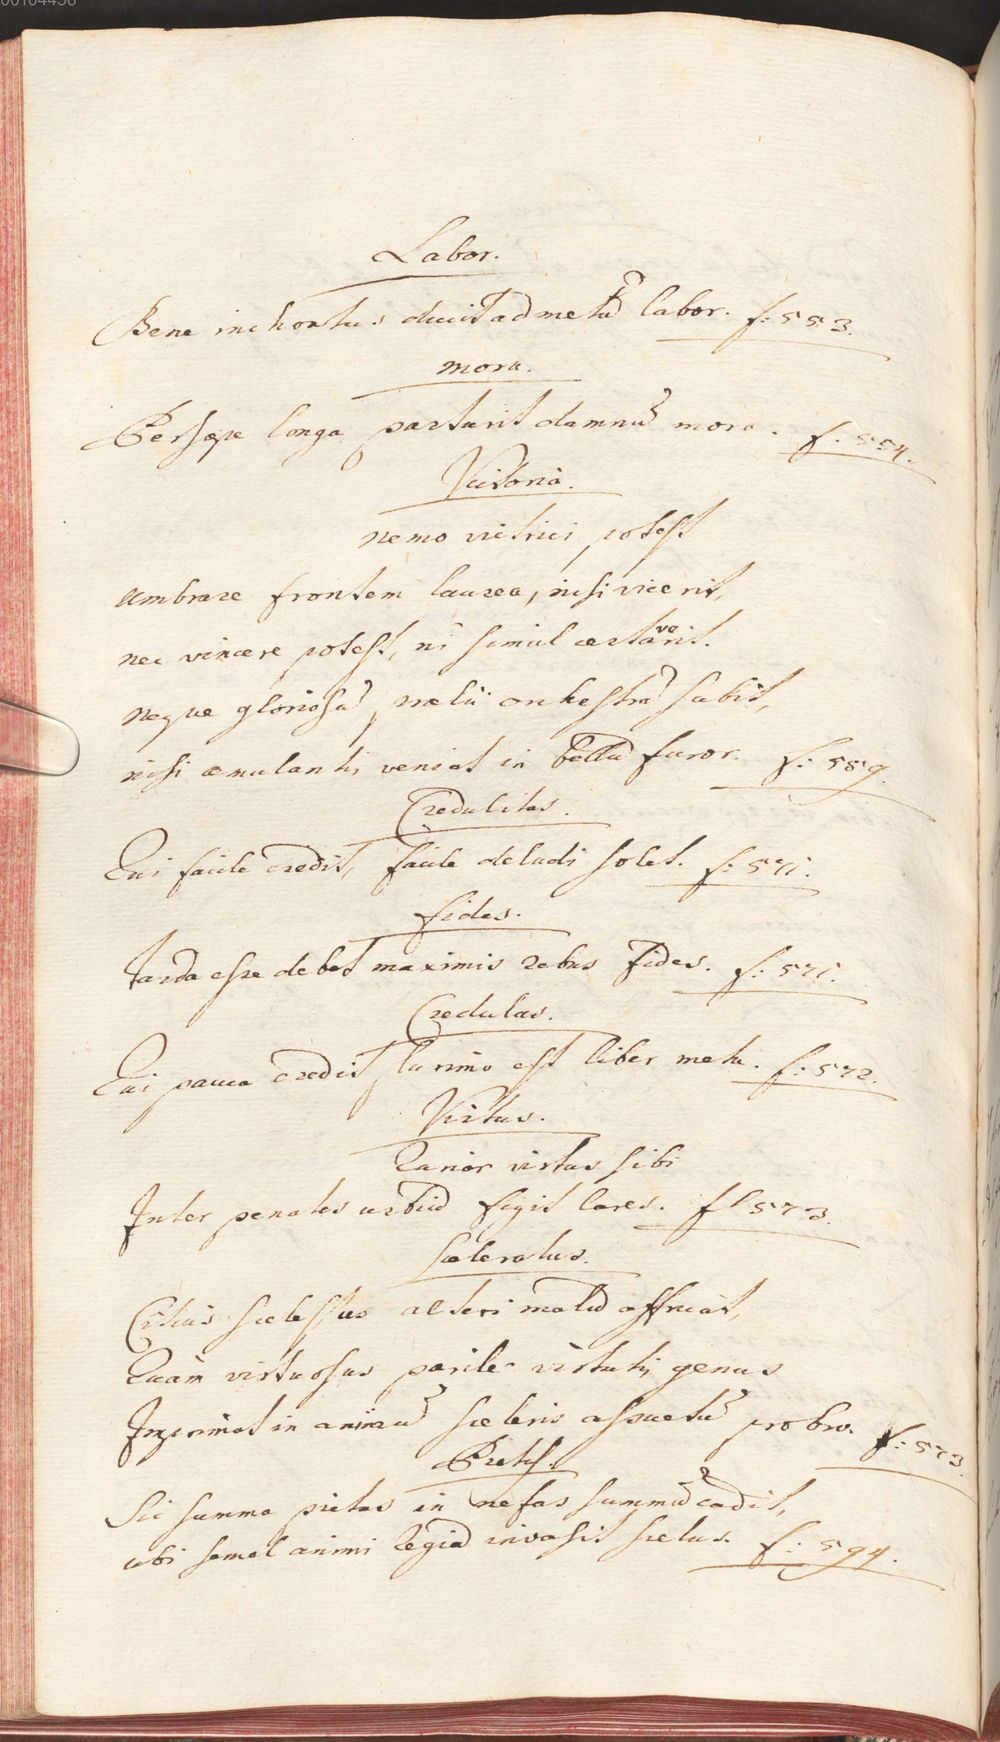 00104456
Labor.
Bene inchoatus ducit ad metā labor. f: 553.
mora.
Persæpe longa parturit damnū mora. f. 554.
Victoria.
nemo victrici potest
umbrare frontem laurea, nisi vicerit,
nec vincere potest, ni simul certaverit.
neque gloriosā, melii orchestrā subit,
nisi æmulantis veniat in bellū furor. f: 589.
Credulitas.
Qui facile credit, facile deludi solet. f: 571.
fides.
tarda esse debet maximis rebus fides. f: 571.
Credulas.
Qui pauca credit, plurimo est liber metu. f: 572.
Virtus.
Rarior virtus sibi
Inter penates urbiū figit lares. f 573.
Sceleratus.
Citius scelestus alteri malū affricat,
Quam virtuosus parile virtutis genus
Imprimat in animū sceleris assuetū probro. f: 573.
Pietas.
Sic summa pietas in nefas summū cadit,
ubi semel animi regiā invasit scelus. f: 594.